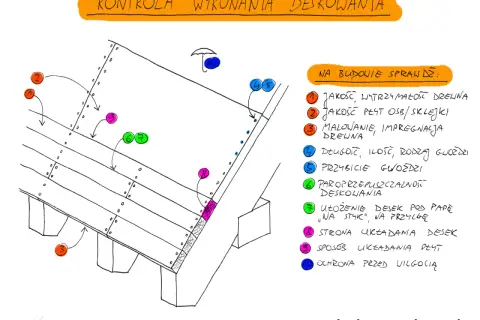 KONTROLA WYKONANIA DESKOWANIA
NA BUDOWIE SPRAWDŹ:
1 JAKOŚĆ, WYTRZYMAŁOŚĆ DREWNA
2 JAKOŚĆ PŁYT OSB/SKLEJKI
3 MALOWANIE, IMPREGNACJA
DREWNA
4 DŁUGOŚĆ, ILOŚĆ, RODZAJ GWOŹDZI
5 PRZYBICIE GWOŹDZI
6 PAROPRZEPUSZCZALNOŚĆ
DESKOWANIA
7 UŁOŻENIE DESEK POD PAPĘ
„NA STYK”, NA PRZYLGĘ
8 STRONA UKŁADANIA DESEK
9 SPOSÓB UKŁADANIA PŁYT
OCHRONA PRZED WILGOCIĄ
2
1
5
6 7
4 5
3